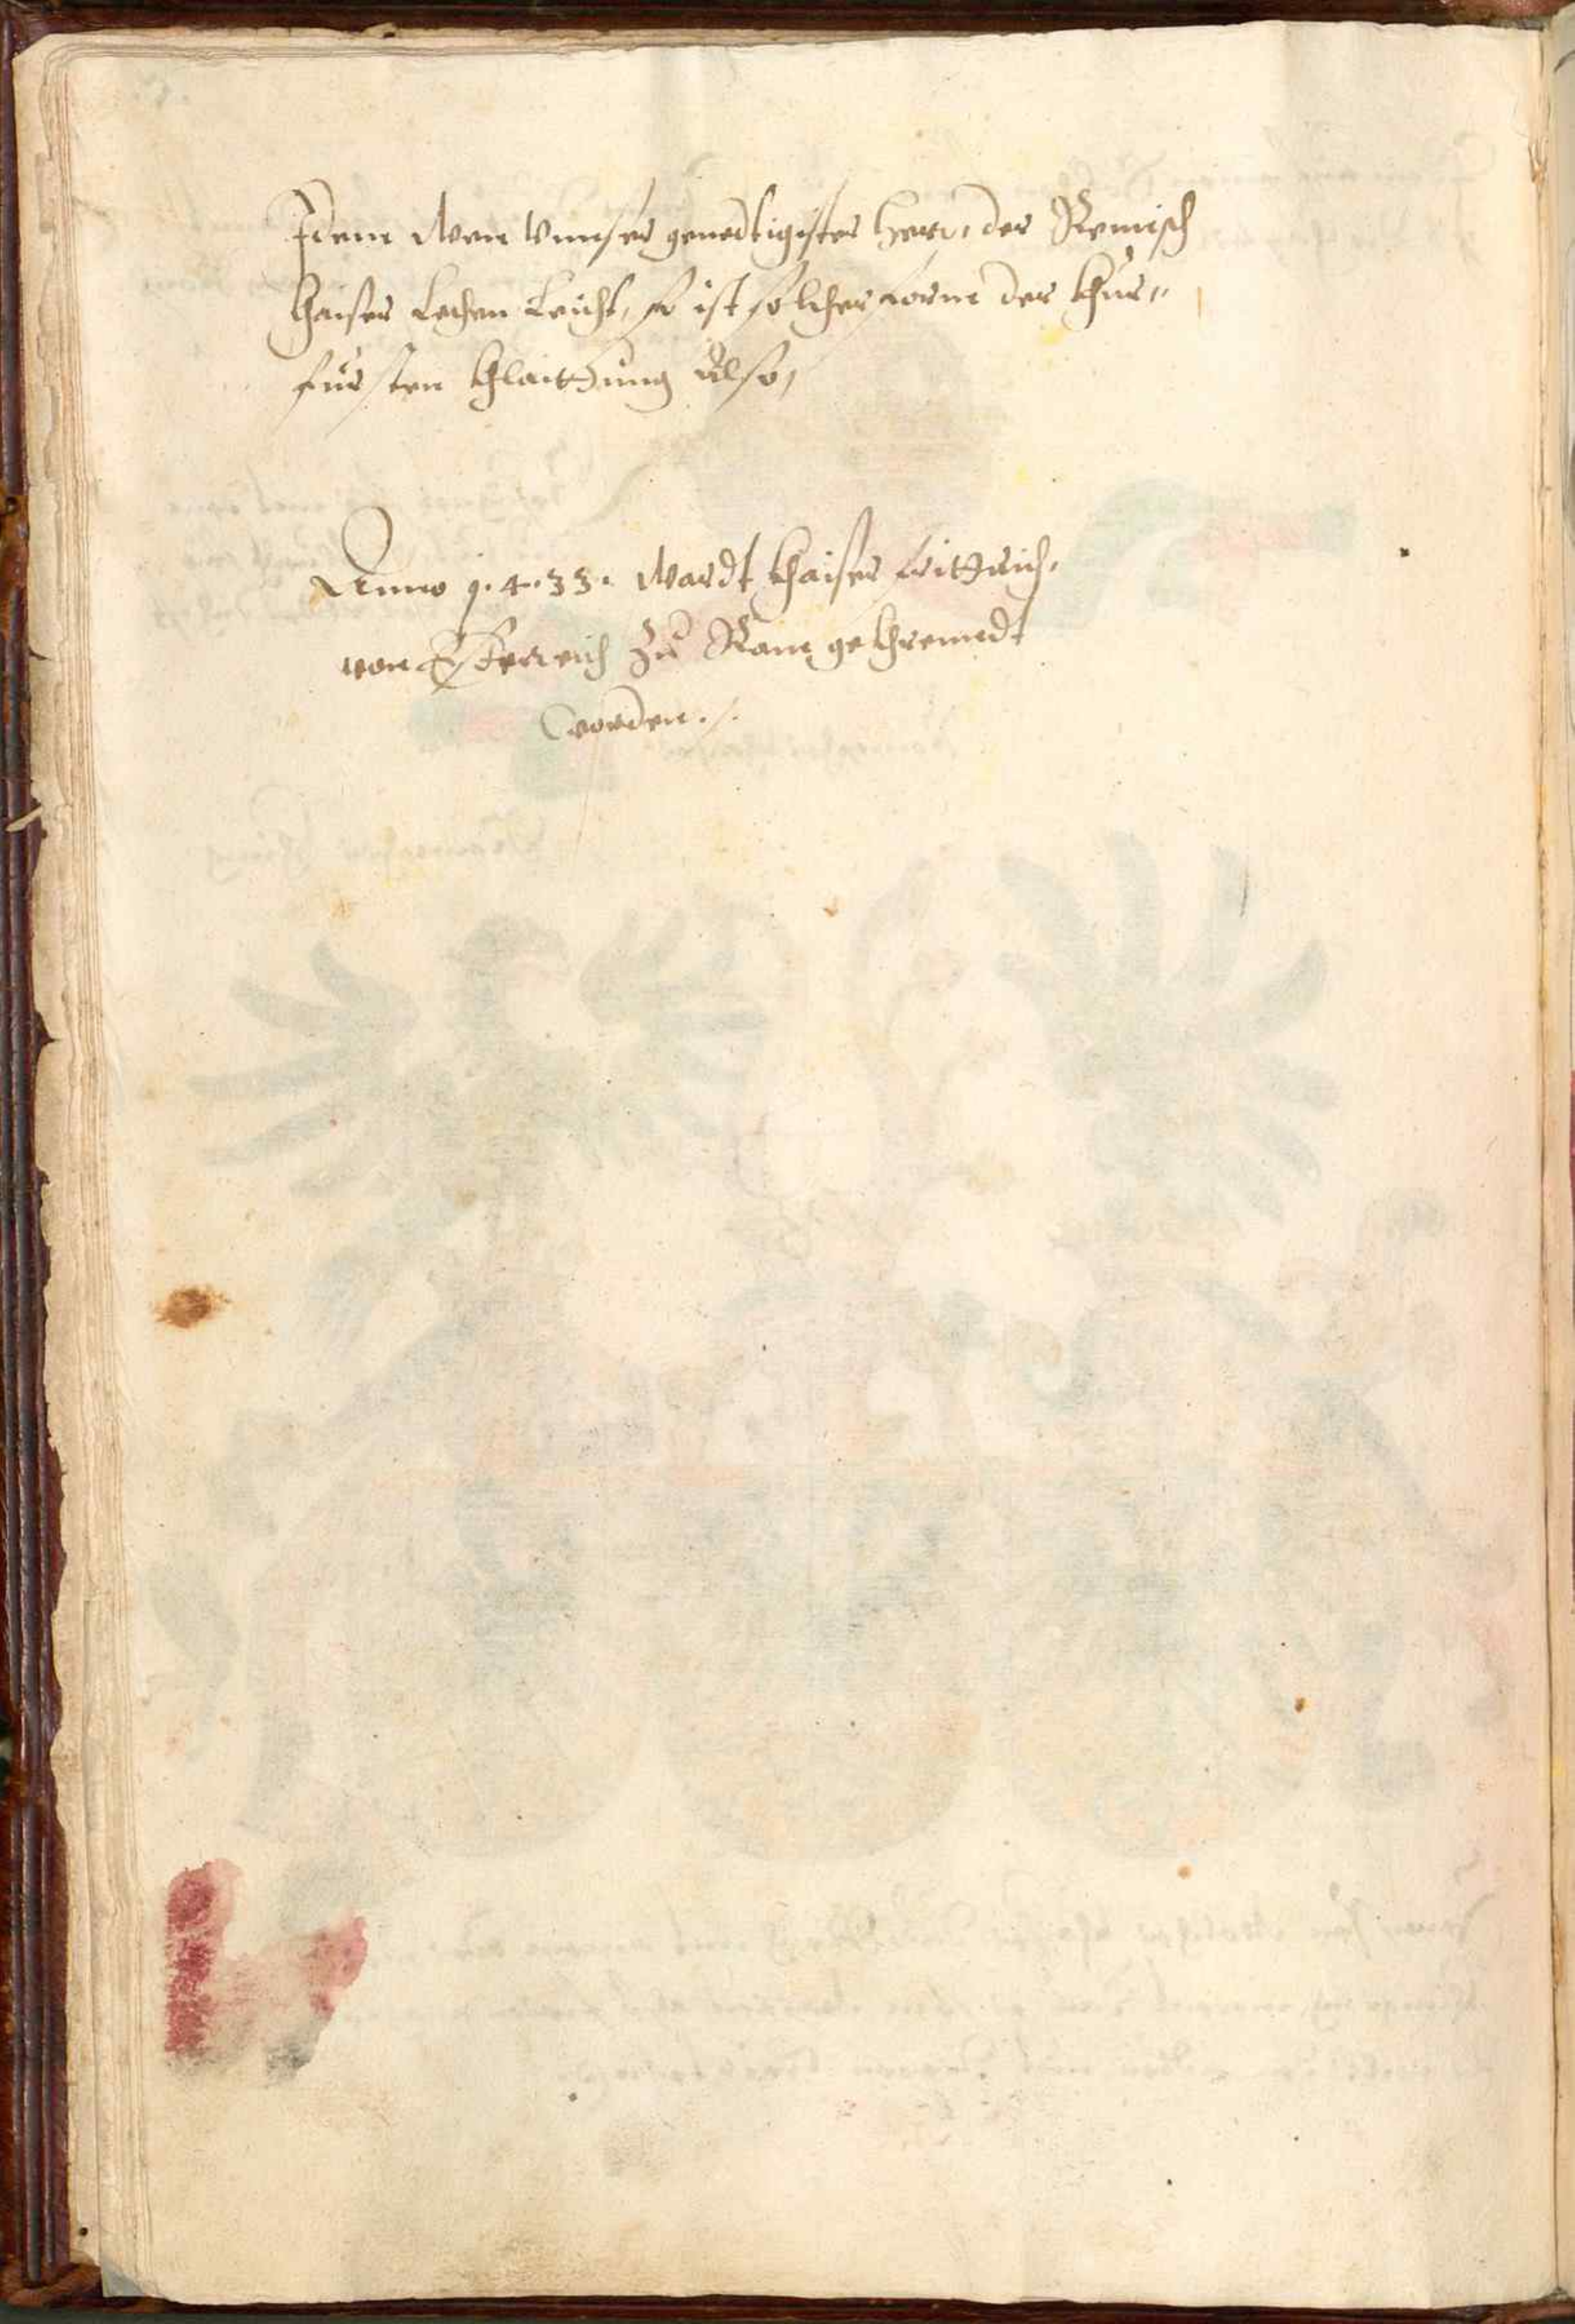 Idem Wen Vnnser genedtigister Herr, der Remisch
Khaiser Lechen Leicht, so ist solcher form der Khur„
fursten Khlaittung Also,
Anno 1.4.33. Wardt Khaiser Frittrich,
von Osterreich Zu Ram gekhrennedt
worden ./.